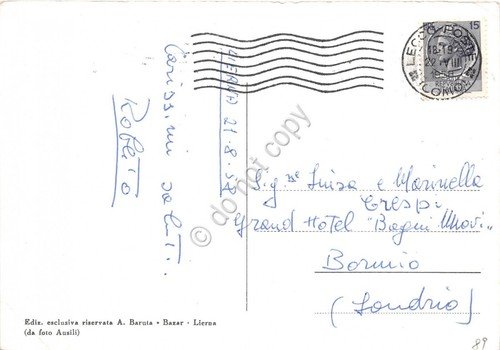 LIERNA 21-8-58
Carissimi saluti.
Roberto
15
LECCO POSTE
18-19
22 VIII
COMO
Sig.ne Luisa e Marinella
Crespi
Grand Hotel "Bagni Nuovi"
Bormio
(Sondrio)
Ediz. esclusiva riservata A. Baruta • Bazar • Lierna
(da foto Ausili)
89
do not copy